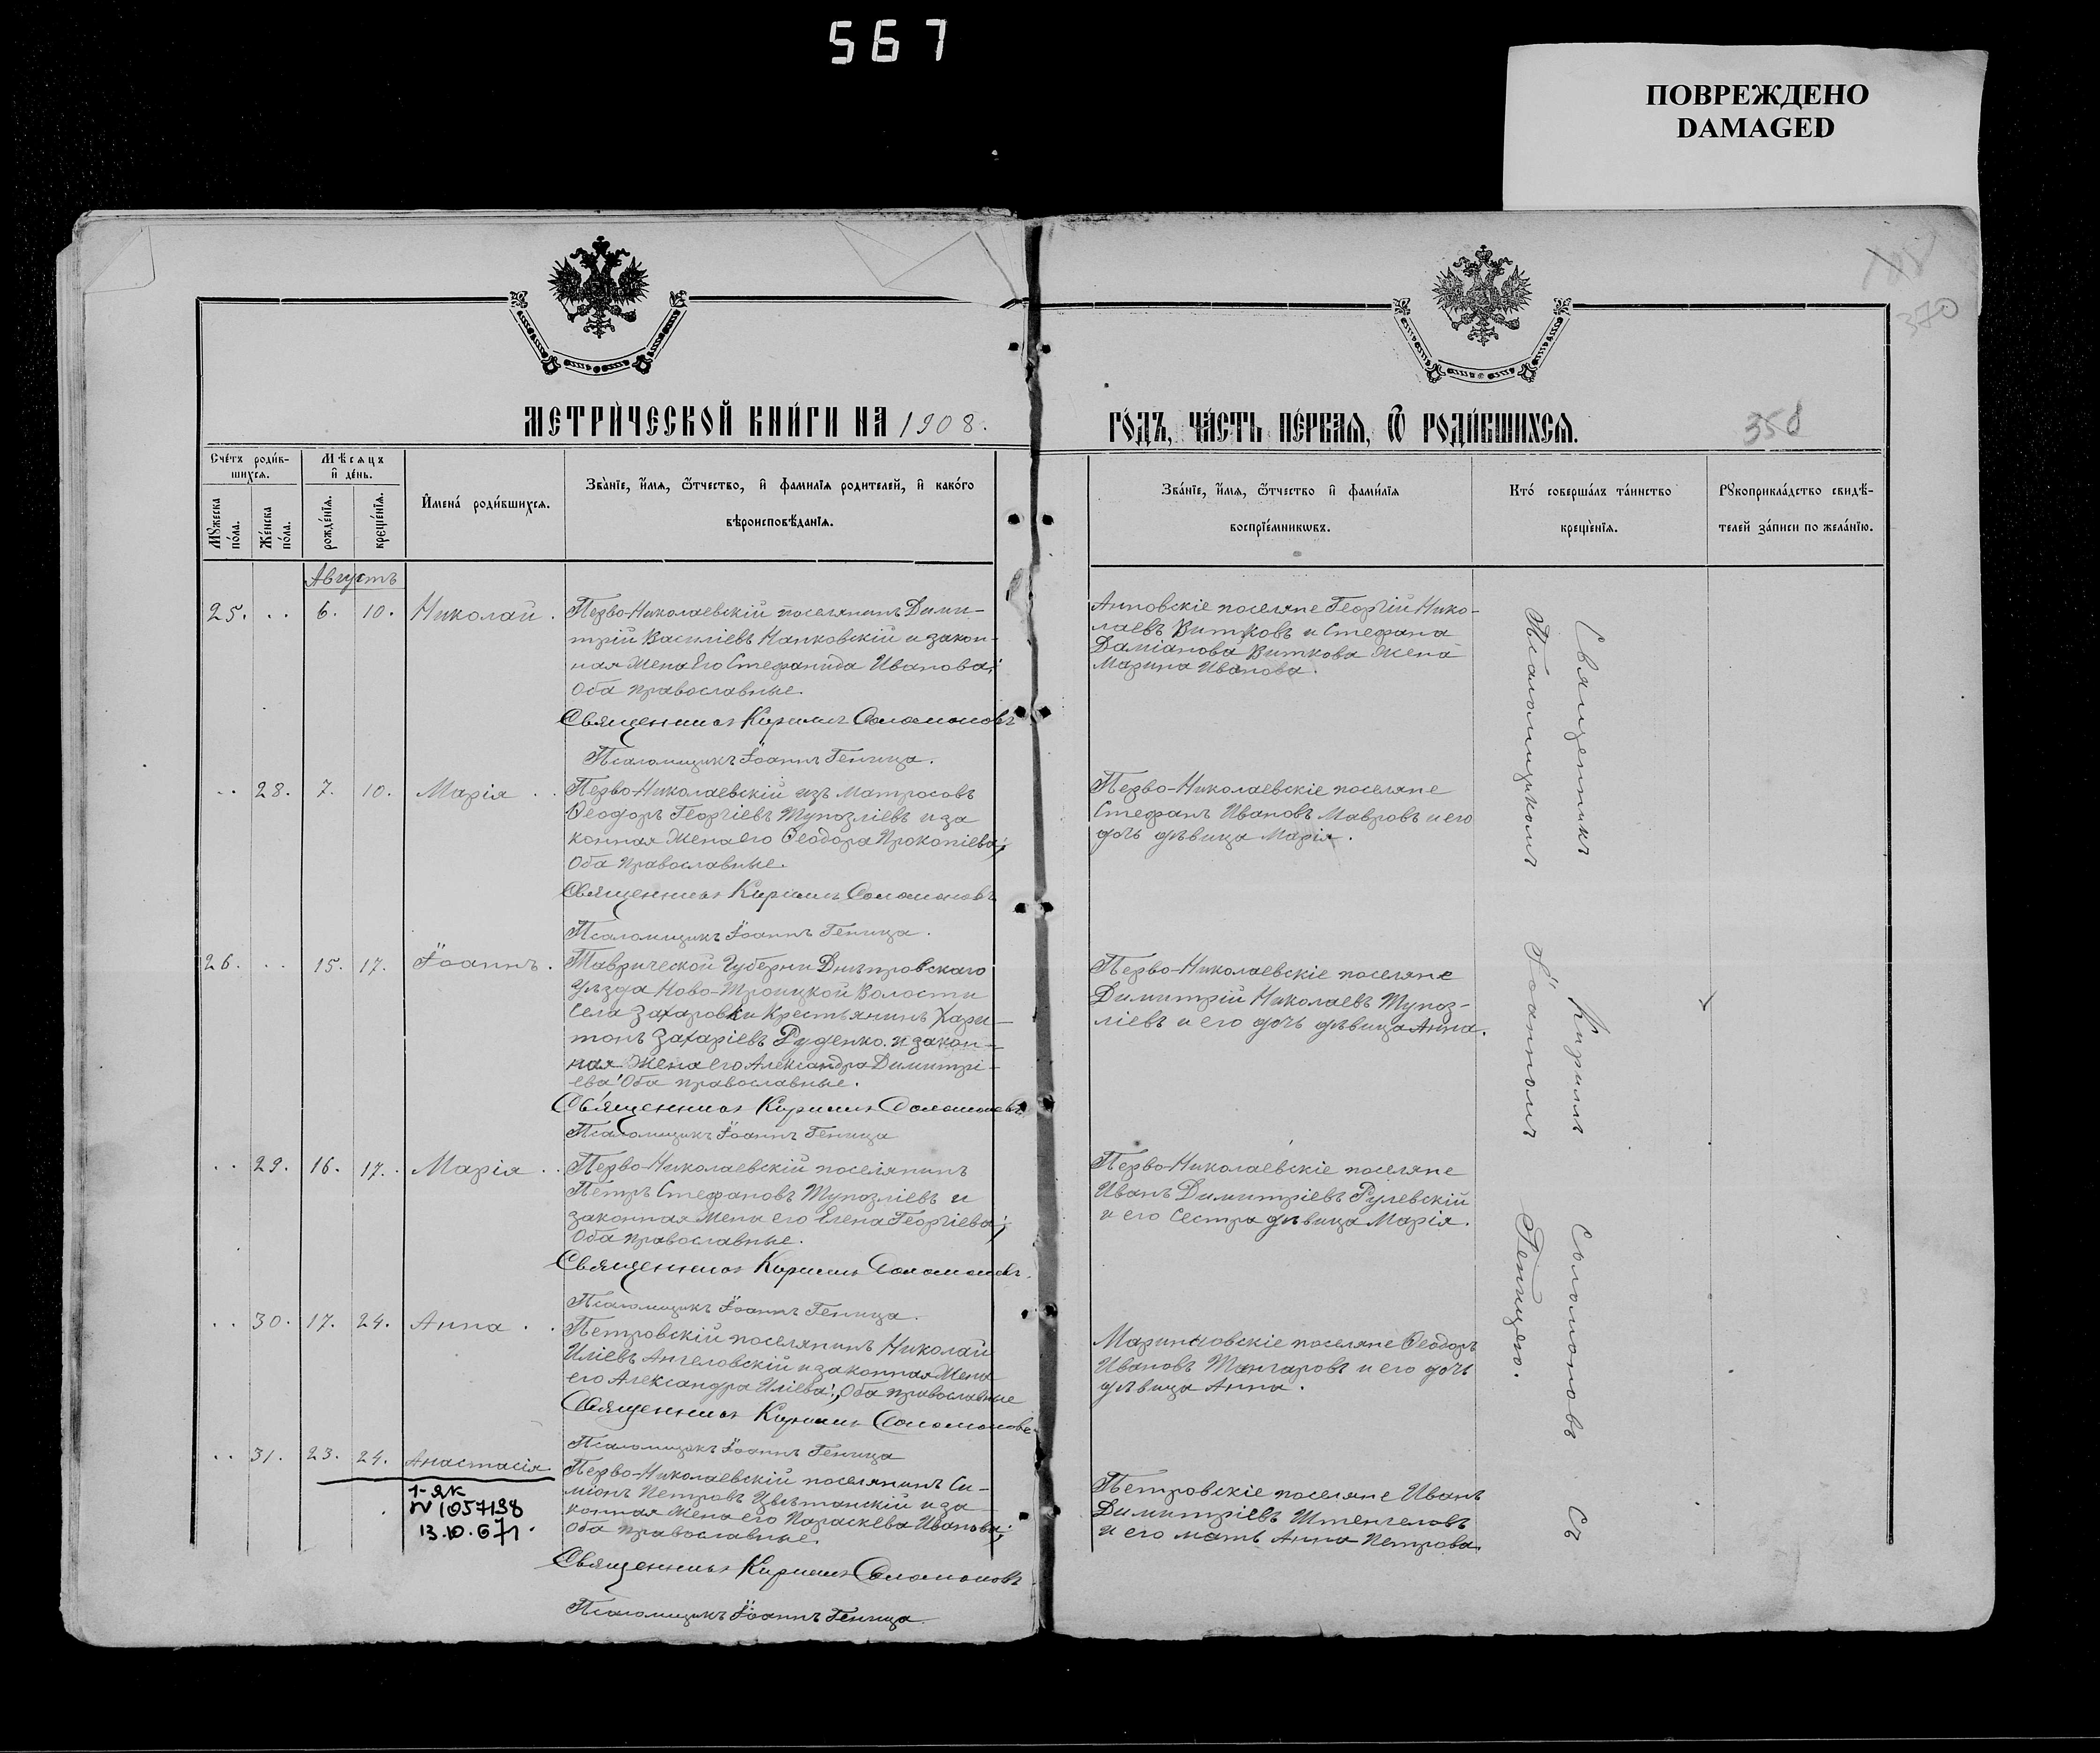 567
ПОВРЕЖДЕНО
DAMAGED
370
МЕТРИ́ЧЕСКОЙ КНИ́ГИ НА 1908.
ГО́ДЪ, ЧА́СТЬ ПЕ́РВАЯ, Ѿ РОДИ́ВШИХСЯ.
358
Сче́тъ роди́в-
шихся.
Мѣсяцъ
и де́нь.
Мꙋжеска по́ла.
Же́нска по́ла.
рожде́нїя.
креще́нїя.
Имена́ роди́вшихся.
Зва́нїе, и́мя, ѻ́тчество, и фами́лїя родителей, и како́го
вѣроисповѣ́данїя.
Зва́нїе, и́мя, ѻ́тчество и фами́лїя
воспрїе́мникѡвъ.
Кто́ соверша́лъ та́инство
креще́нїя.
Рꙋкоприкла́дство свидѣ́-
телей за́писи по жела́нїю.
Августъ
25. .. 6. 10. Николай.
Перво-Николаевскій поселянинъ Дими-
трій Василіевъ Капковскій и закон-
ная жена его Стефанида Иванова;
Оба православные.
Священникъ Кириллъ Соломоновъ
Псаломщикъ Іоаннъ Геница.
Анновскіе поселяне Георгій Нико-
лаевъ Витковъ и Стефана
Даміанова Виткова жена
Марина Иванова.
.. 28. 7. 10. Марія ..
Перво-Николаевскій изъ матросовъ
Ѳеодоръ Георгіевъ Тупозліевъ и за
конная жена его Ѳеодора Прокопіева;
Оба православные.
Священникъ Кириллъ Соломоновъ
Псаломщикъ Іоаннъ Геница.
Перво-Николаевскіе поселяне
Стефанъ Ивановъ Мавровъ и его
дочь дѣвица Марія.
26. .. 15. 17. Іоаннъ.
Таврической Губерни Днѣпровскаго
уѣзда Ново-Троицкой Волости
села Захаровки крестьянинъ Хари-
тонъ Захаріевъ Руденко и закон-
ная жена его Александра Димитрі-
ева; Оба православные.
Священникъ Кириллъ Соломоновъ
Псаломщикъ Іоаннъ Геница
Перво-Николаевскіе поселяне
Димитрій Николаевъ Тупоз-
ліевъ и его дочь дѣвица Анна.
.. 29. 16. 17. Марія ..
Перво-Николаевскій поселянинъ
Петръ Стефановъ Тупозліевъ и
законная жена его Елена Георгіева;
Оба православные.
Священникъ Кириллъ Соломоновъ.
Псаломщикъ Іоаннъ Геница.
Перво-Николаевскіе поселяне
Иванъ Димитріевъ Рулевскій
и его сестра дѣвица Марія.
.. 30. 17. 24. Анна ..
Петровскій поселянинъ Николай
Иліевъ Ангеловскій и законная жена
его Александра Иліева; Оба православные
Священникъ Кириллъ Соломоновъ
Псаломщикъ Іоаннъ Геница
Мариновскіе поселяне Ѳеодоръ
Ивановъ Тангаровъ и его дочь
дѣвица Анна.
.. 31. 23. 24. Анастасія
1-ЯК
№ 1057138
13.10.671.
Перво-Николаевскій поселянинъ Си-
міонъ Петровъ Цвѣтанскій и за
конная жена его Параскева Иванова;
Оба православные.
Священникъ Кириллъ Соломоновъ
Псаломщикъ Іоаннъ Геница
Петровскіе поселяне Иванъ
Димитріевъ Штенгеловъ
и его мать Анна Петрова.
Священникъ Кириллъ Соломоновъ съ
Псаломщикомъ Іоанномъ Геницею.